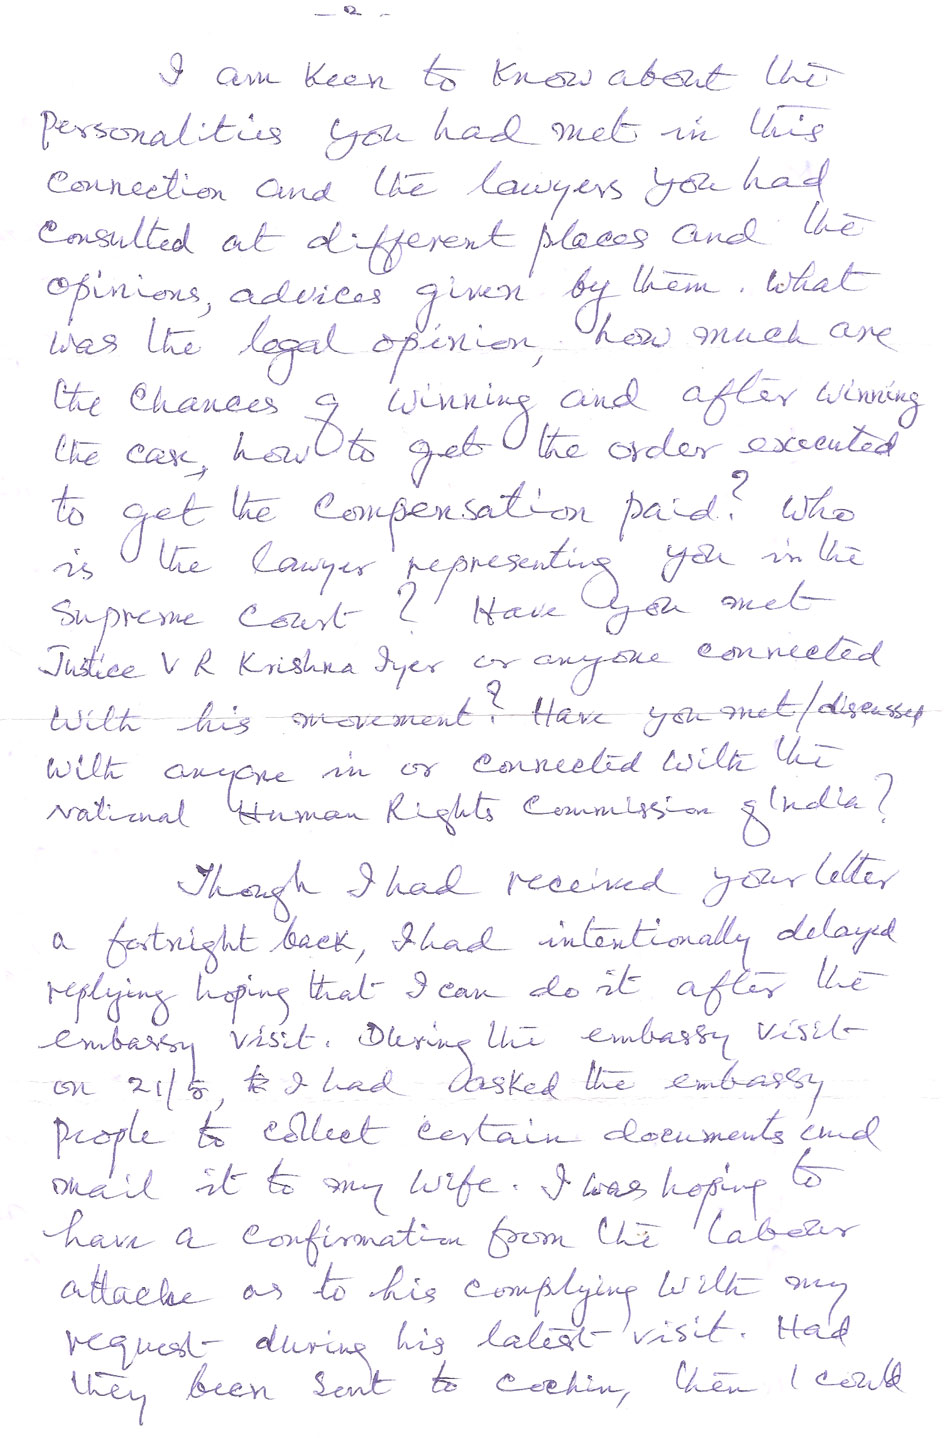 - 2 -
I am keen to know about the
personalities you had met in this
connection and the lawyers you had
consulted at different places and the
opinions, advices given by them. What
was the legal opinion, how much are
the chances of winning and after winning
the case, how to get the order executed
to get the compensation paid? Who
is the lawyer representing you in the
Supreme Court? Have you met
Justice V R Krishna Iyer or anyone connected
with his movement? Have you met/discussed
with anyone in or connected with the
National Human Rights Commission of India?
Though I had received your letter
a fortnight back, I had intentionally delayed
replying hoping that I can do it after the
embassy visit. During the embassy visit
on 21/5, I had asked the embassy
people to collect certain documents and
mail it to my wife. I was hoping to
have a confirmation from the labour
attache as to his complying with my
request during his latest visit. Had
they been sent to cochin, then I could